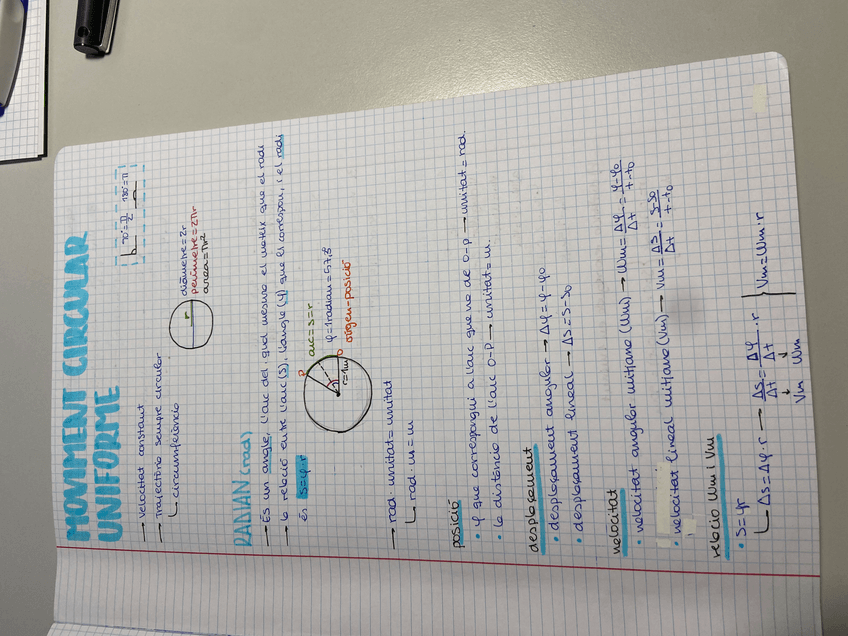 MOVIMENT CIRCULAR
UNIFORME
→ Velocitat constant
→ Trajectòria sempre circular
↳ circumferència
r
diàmetre = 2r
perímetre = 2πr
area = πr²
90° = π/2 180° = π
RADIAN (rad)
→ És un angle, l'arc del qual mesura el mateix que el radi
→ la relació entre l'arc (s), l'angle (φ) que li correspon, i el radi
és s = φ · r
P
arc = s = r
φ = 1 radian = 57,3°
O
r = 1m
origen-posició
→ rad · unitat = unitat
↳ rad · m = m
posició
• φ que correspongui a l'arc que va de O-P → unitat = rad.
• la distància de l'arc O-P → unitat = m.
desplaçament
• desplaçament angular → Δφ = φ - φ₀
• desplaçament lineal → Δs = s - s₀
velocitat
• velocitat angular mitjana (Wm) → Wm = Δφ/Δt = φ-φ₀/t-t₀
• velocitat lineal mitjana (Vm) → Vm = Δs/Δt = s-s₀/t-t₀
relació Wm i Vm
• s = φr
↳ Δs = Δφ · r → Δs/Δt = Δφ/Δt · r
Vm = Wm · r
↓ ↓
Vm Wm